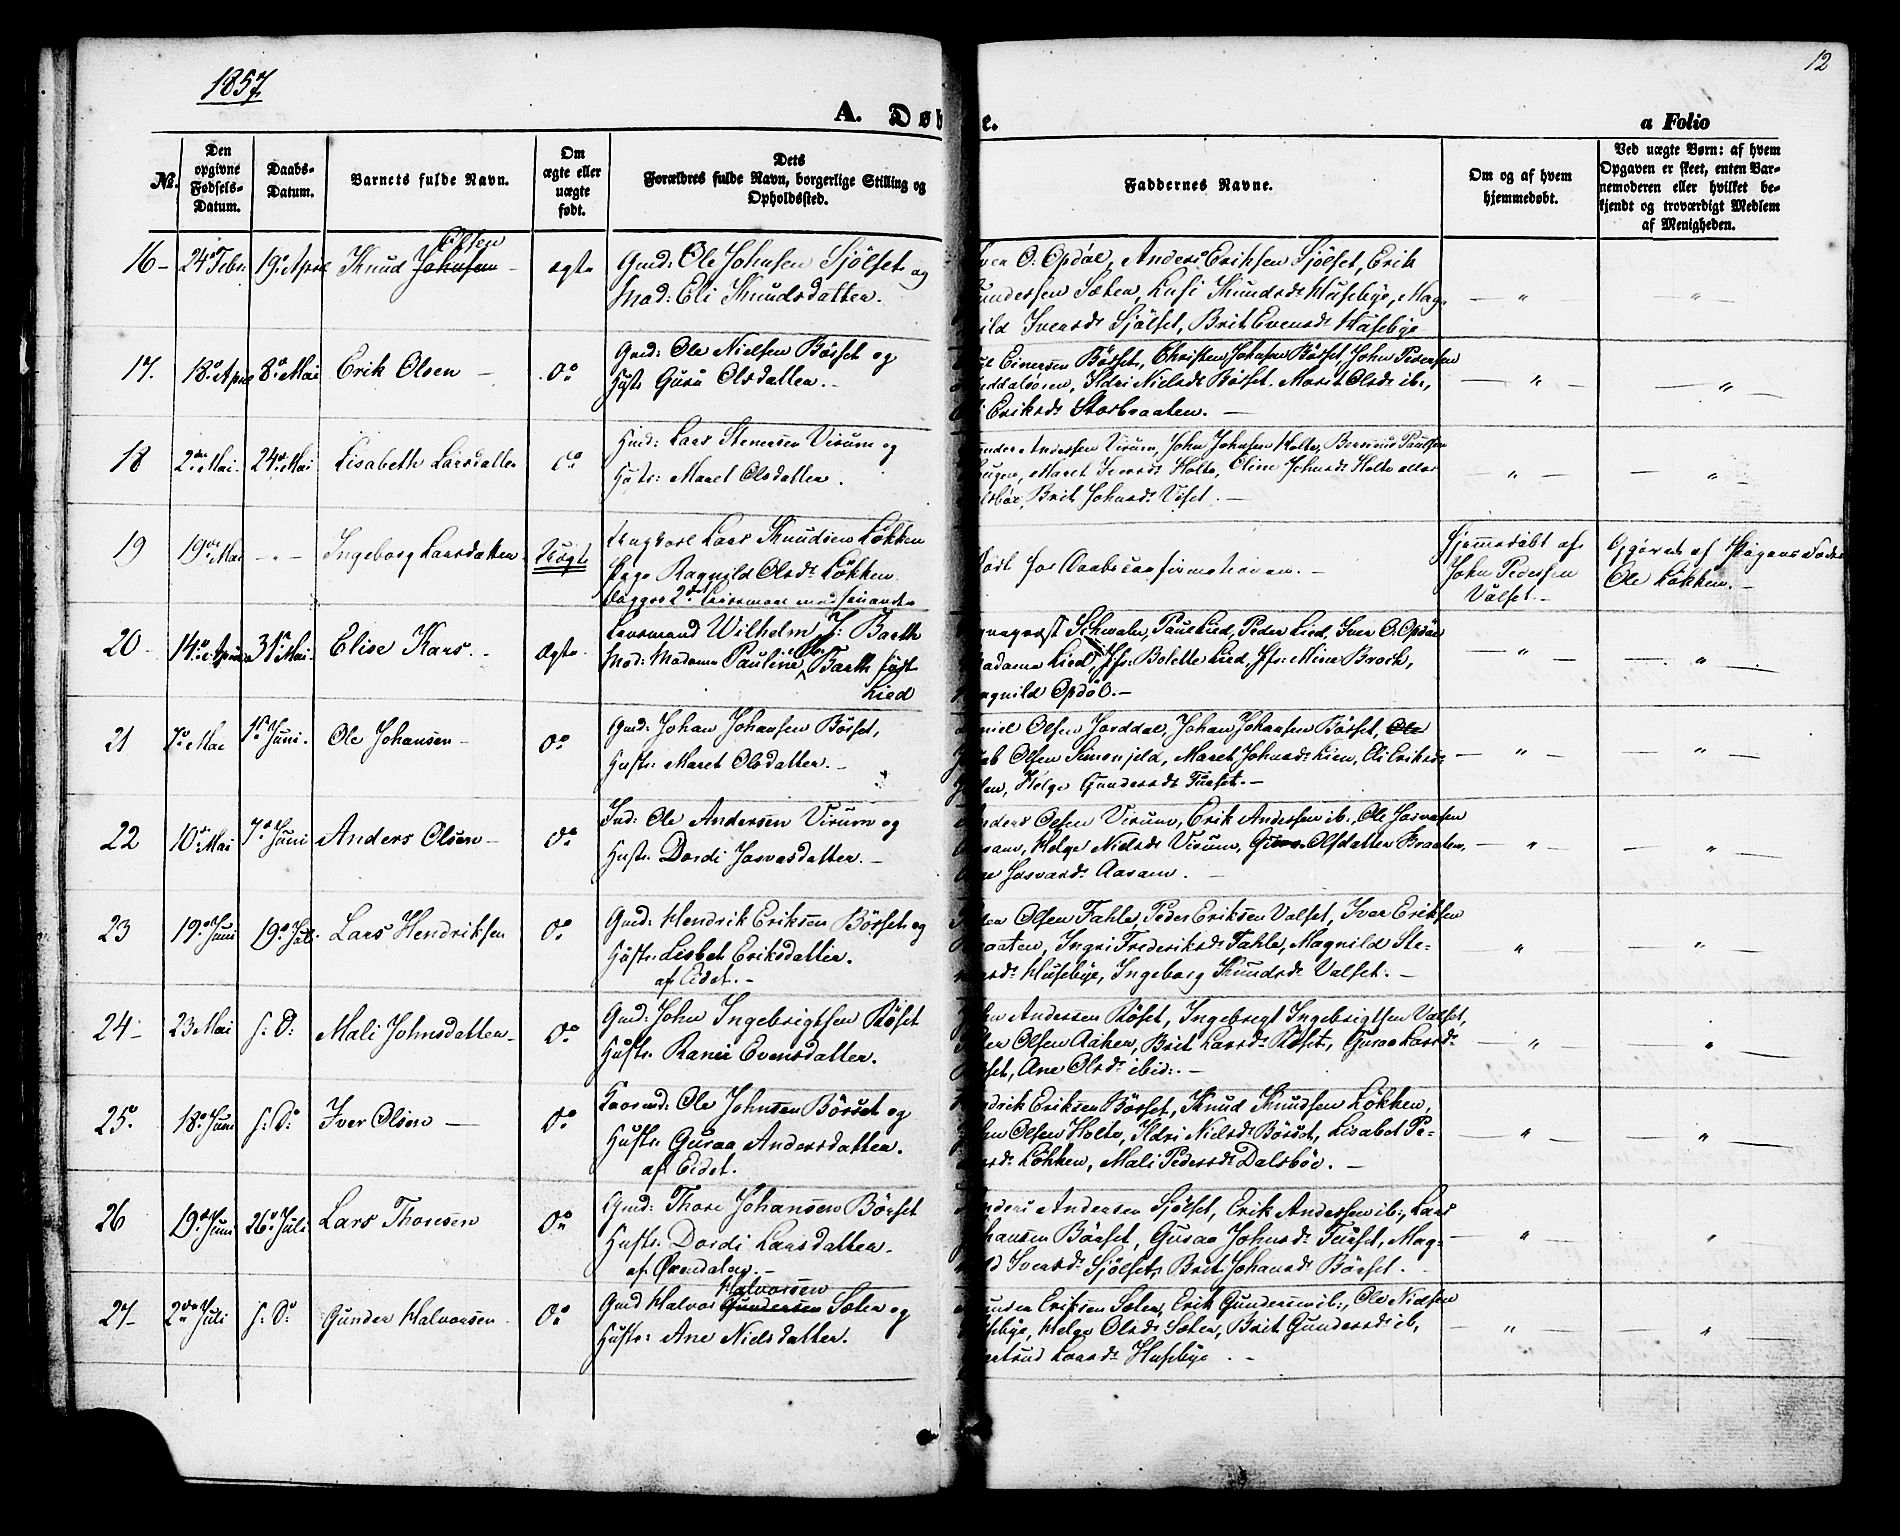 1857.
12
A. Døb e.
a Folio
No.
Den opgivne Fødsels-Datum.
Daabs-Datum.
Barnets fulde Navn.
Om ægte eller uægte født.
Dets Forældres fulde Navn, borgerlige Stilling og Opholdssted.
Faddernes Navne.
Om og af hvem hjemmedøbt.
Ved uægte Børn: af hvem Opgaven er skeet, enten Barnemoderen eller hvilket bekjendt og troværdigt Medlem af Menigheden.
16 - 24de Febr. 19de April Knud Johnsen Olsen - ægte Gmd: Ole Johnsen Sjölset og
Mad: Eli Knudsdatter.
Iver O. Opdöl, Anders Eriksen Sjölset, Erik
Gundersen Sæter, Kari Knudsd. Husebye, Mag-
nild Iversd. Sjölset, Brit Evensd. Husebye
17. 18de April 8de Mai Erik Olsen - Do Gmd: Ole Nielsen Börset og
Hustr. Guru Olsdatter. -
Einersen Börset, Christen Johnsen Börset, John Pedersen
Ildri Nielsd. Börset. Marit Olsd. ib.,
Eriksd. Storbraaten. -
18 2den Mai. 24de Mai Lisabeth Larsdatter Do Hmd: Lars Stenersen Virum og
Hustr: Maret Olsdatter.
Andersen Virum, John Johnsen Holte, Paulsen
Maret Iversd. Holte, Johnsd. Holte eller
Brit Johnsd.
19 19de Mai - " - Ingeborg Larsdatter. Uægte Ungkarl Lars Knudsen Lökken
Pige Ragnild Olsd. Lökken.
Begges 2det Leiermaal med hinanden
Död för Daabsconfirmationen. -
Hjemmedöbt af
John Pedersen
Valset -
Opgivet af Pigens Fader
Ole Lökken. -
20 - 14de April 31te Mai. Elise Kars. - ægte. Lensmand Wilhelm J: Barth
Mad: Madame Pauline Barth født
Lied
Schwabe, Paul Lied, Peder Lied, Iver O. Opdöl
Madame Lied, Jfr: Bolette Lied, Jfr: Mine Brock,
Magnild Opdöl. -
21 7de Mai 1ste Juni. Ole Johansen - Do Gmd: Johan Johansen Börset,
Hustr: Maret Olsdatter. -
Olsen Jorddal, Johan Johansen Börset, Ole
Olsen Maret Johnsd. Lien, Eli Eriksd.
Helge Gundersd. Furset. -
22 10de Mai 7de Juni Anders Olsen - Do Ind: Ole Andersen Virum og
Hustr: Dordi Josvasdatter. -
Anders Olsen Virum, Erik Andersen ib., Ole Josvasen
Aasam, Helge Nielsd. Virum, Guru Olsdatter Braaten,
Josvasd. Aasam. -
23 19de Juni 19de Juli. Lars Hendriksen Do Gmd: Hendrik Eriksen Börset og
Hustr: Lisbet Eriksdatter.
af Eidet. -
Olsen Fahle, Peder Eriksen Valset, Iver Eriksen
Braaten, Ingri Frederiksd. Fahle, Magnild Ste-
nersd. Husebye, Ingeborg Knudsd. Valset. -
24 - 23 Mai S: D: Mali Johnsdatter. Do Gmd: John Ingebrigtsen Röset
Hustr. Ranei Evensdatter.
Andersen Röset, Ingebregt Ingebrigtsen Valset,
Olsen Aaker, Brit Larsd. Röset, Guraa Larsd.
Röset, Ane Olsd. ibid:. -
25. 18de Juni S: D: Iver Olsen - Do Ole Johnsen Börset og
Hustr: Guraa Andersdatter.
af Eidet.
Hendrik Eriksen Börset, Knud Knudsen Lökken,
John Olsen Holte, Ildri Nielsd. Börset, Lisabet Pe-
dersd. Lökken, Mali Pedersd. Dalsböe. -
26 19de Juni 26de Juli Lars Thoresen Do Gmd: Thore Johansen Börset
Hustr: Dordi Larsdatter.
af Örendalen. -
Anders Andersen Sjölset, Erik Andersen ib:, Lars
Johansen Börset, Guraa Johnsd. Furset, Mag-
nild Iversd. Sjölset, Brit Johansd. Börset. -
27 - 2den Juli S: D: Gunder Halvorsen Do Gmd Halvor Gundersen Halvorsen Sæter og
Hustr: Ane Nielsdatter.
Gunder Eriksen Sæter, Erik Gundersen ib:, Ole Nielsen
Husebye, Helge Olsd. Sæter, Brit Gundersd. ib,
Gjertrud Larsd. Husebye. -